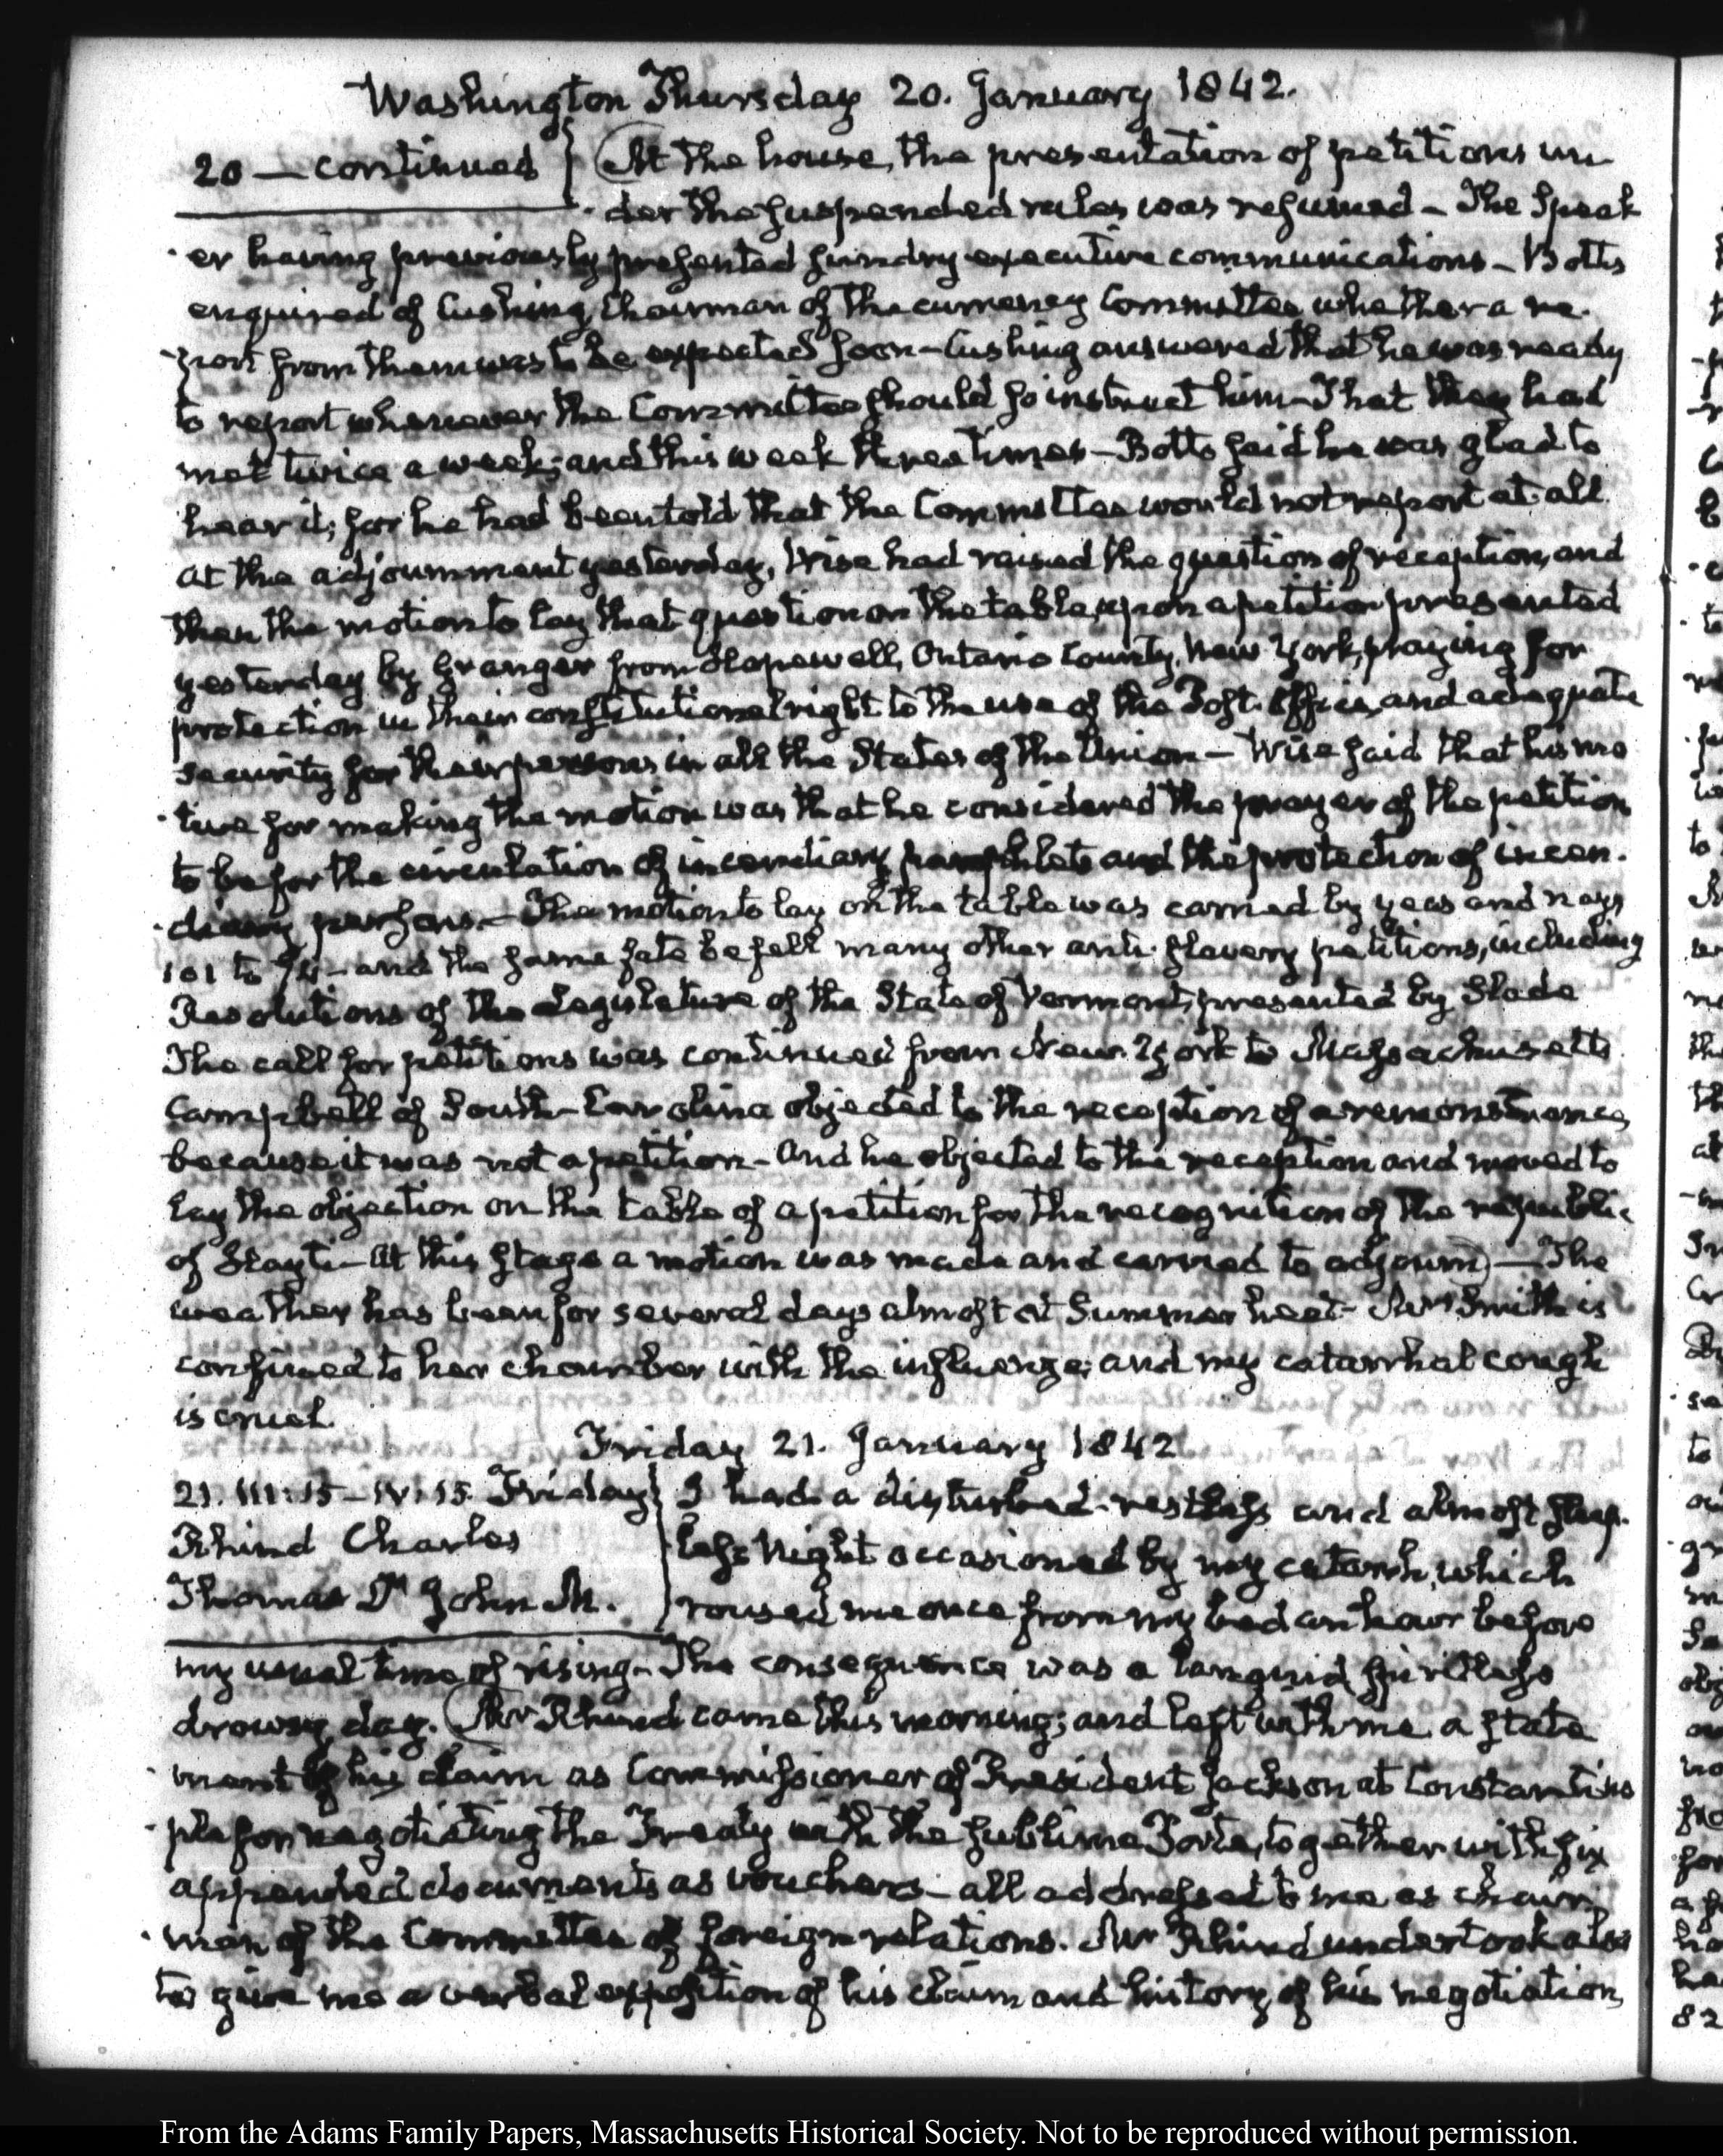 Washington Thursday 20. January 1842.
20 — continued } At the house, the presentation of petitions un
der the suspended rules was resumed — The Speak
er having previously presented sundry executive communications — Botts
enquired of Cushing, Chairman of the currency Committee whether a re
port from them was to be expected soon — Cushing answered that he was ready
to report whenever the Committee should so instruct him — That they had
met twice a week; and this week three times — Botts said he was glad to
hear it; for he had been told that the Committee would not report at all
At the adjournment yesterday, Wise had raised the question of reception, and
then the motion to lay that question on the table, upon a petition presented
yesterday by Granger from Hopewell, Ontario County, New York, praying for
protection in their constitutional right to the use of the Post-Office, and adequate
security for their persons in all the States of the Union — Wise said that his mo
tive for making the motion was that he considered the prayer of the petition
to be for the circulation of incendiary pamphlets and the protection of incen
diary persons — The motion to lay on the table was carried by yeas and nays
101 to — and the same fate befell many other anti-slavery petitions, including
Resolutions of the Legislature of the State of Vermont, presented by Slade
The call for petitions was continued from New York to Massachusetts
Campbell of South-Carolina objected to the reception of a remonstrance,
because it was not a petition — And he objected to the reception and moved to
lay the objection on the table of a petition for the recognition of the republic
of Hayti — At this stage a motion was made and carried to adjourn) — The
weather has been for several days almost at Summer heat — Mrs Smith is
confined to her chamber with the influenza; and my catarrhal cough
is cruel.
Friday 21. January 1842
21. III:15 — IV:15. Friday } I had a disturbed restless and almost sleep
Rhind Charles
less Night occasioned by my catarrh, which
Thomas Dr John M.
roused me once from my bed an hour before
my usual time of rising — The consequence was a languid spiritless
drowsy day. (Mr Rhind came this morning; and left with me a state
ment of his claim as Commissioner of President Jackson at Constantino
ple for negotiating the Treaty with the Sublime Porte, together with six
appended documents as vouchers — all addressed to me as chair
man of the Committee of foreign relations. Mr Rhind undertook also
to give me a verbal exposition of his claim and history of his negotiation,
From the Adams Family Papers, Massachusetts Historical Society. Not to be reproduced without permission.